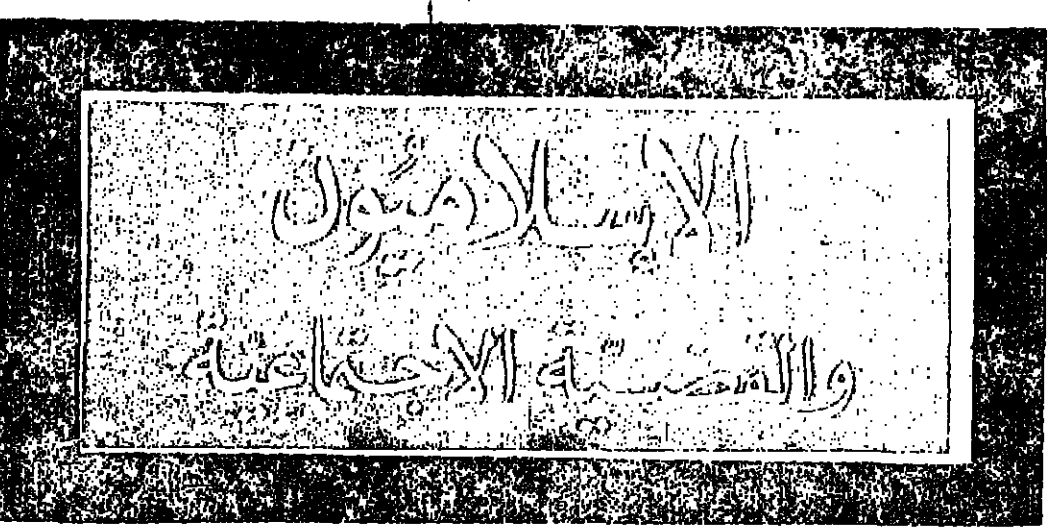 الإسلاميُّون
والقضيّة الاجتماعيّة